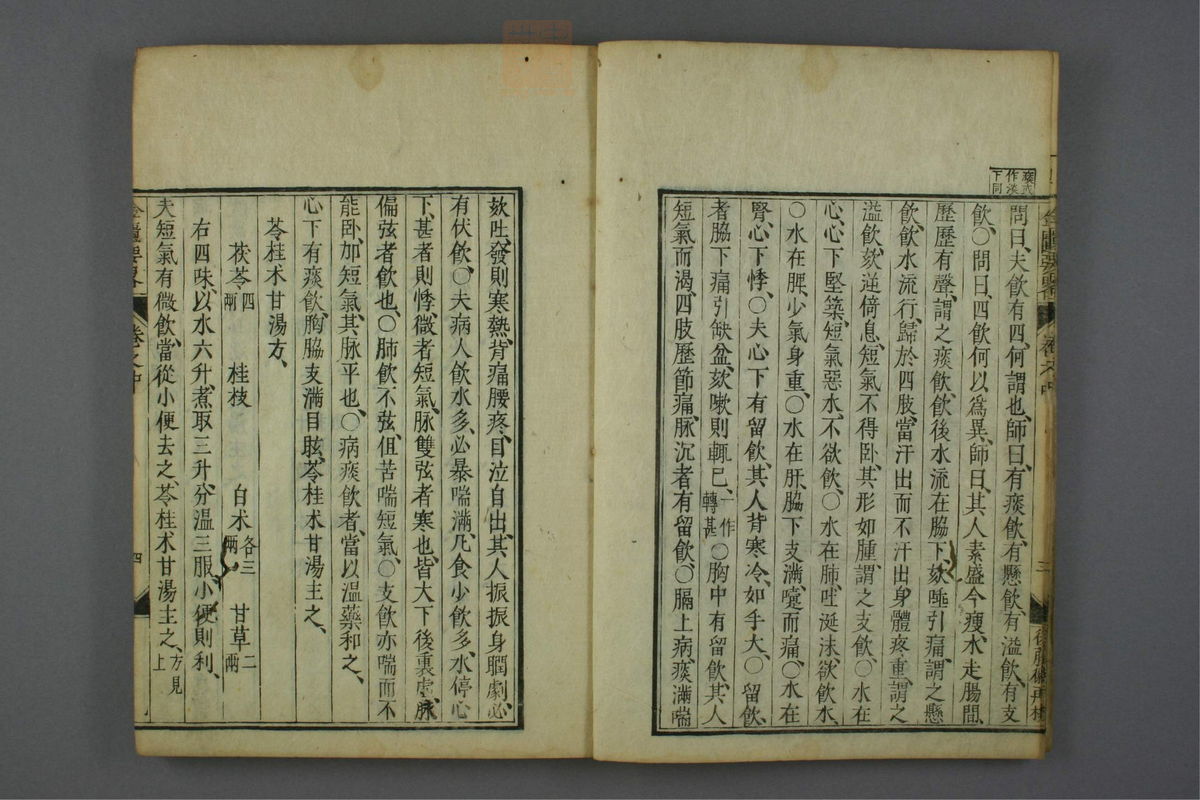 痰或
作淡
下同
問曰、夫飮有四、何謂也、師曰、有痰飮、有懸飮、有溢飮、有支
飮、○問曰、四飮何以爲異、師曰、其人素盛今瘦、水走腸間、
歷歷有聲、謂之痰飮、飮後水流在脇下、欬唾引痛、謂之懸
飮、飮水流行、歸於四肢、當汗出而不汗出、身體疼重、謂之
溢飮、欬逆倚息、短氣不得卧、其形如腫、謂之支飮、○水在
心、心下堅築、短氣惡水、不欲飮、○水在肺、吐涎沫、欲飮水、
○水在脾、少氣身重、○水在肝、脇下支滿、嚏而痛、○水在
腎、心下悸、○夫心下有留飮、其人背寒冷、如手大、○留飮
者、脇下痛引缺盆、欬嗽則輒已、一作轉甚○胸中有留飮、其人
短氣而渴、四肢歷節痛、脉沉者、有留飮、○膈上病、痰滿喘
欬吐、發則寒熱、背痛腰疼、目泣自出、其人振振身瞤劇、必
有伏飮、○夫病人飮水多、必暴喘滿、凡食少飮多、水停心
下、甚者則悸、微者短氣、脉雙弦者寒也、皆大下後裏虚、脉
偏弦者飮也、○肺飮不弦、但苦喘短氣、○支飮亦喘而不
能卧、加短氣、其脉平也、○病痰飮者、當以溫藥和之、
心下有痰飮、胸脇支滿目眩、苓桂朮甘湯主之、
苓桂朮甘湯方、
茯苓四兩 桂枝 白朮各三兩 甘草二兩
右四味、以水六升、煮取三升、分溫三服、小便則利、
夫短氣有微飮、當從小便去之、苓桂朮甘湯主之、方見上
卷之中 四